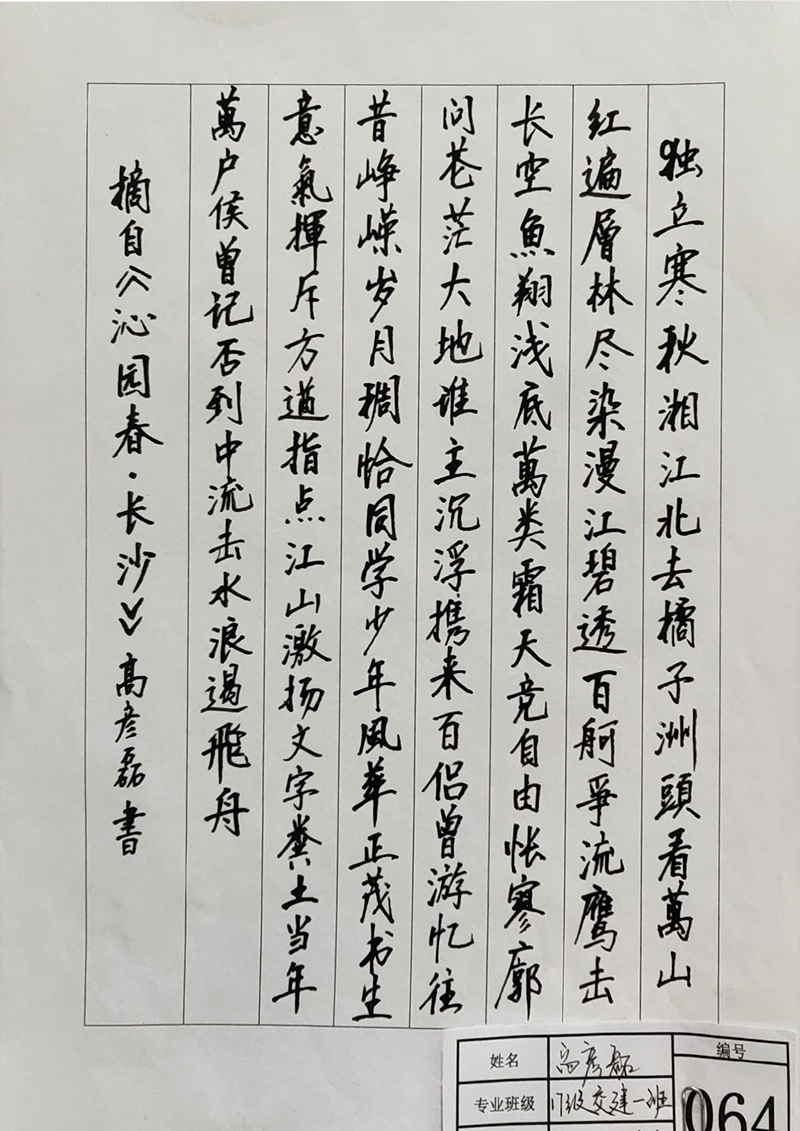 独立寒秋湘江北去橘子洲頭看萬山
红遍層林尽染漫江碧透百舸爭流鹰击
长空魚翔浅底萬类霜天竞自由怅寥廓
问苍茫大地谁主沉浮携来百侣曾游忆往
昔峥嵘岁月稠恰同学少年風华正茂书生
意氣揮斥方遒指点江山激扬文字粪土当年
萬户侯曾记否到中流击水浪遏飛舟
摘自《沁园春·长沙》高彦磊書
姓名 高彦磊 编号
专业班级 17级交建一班 064